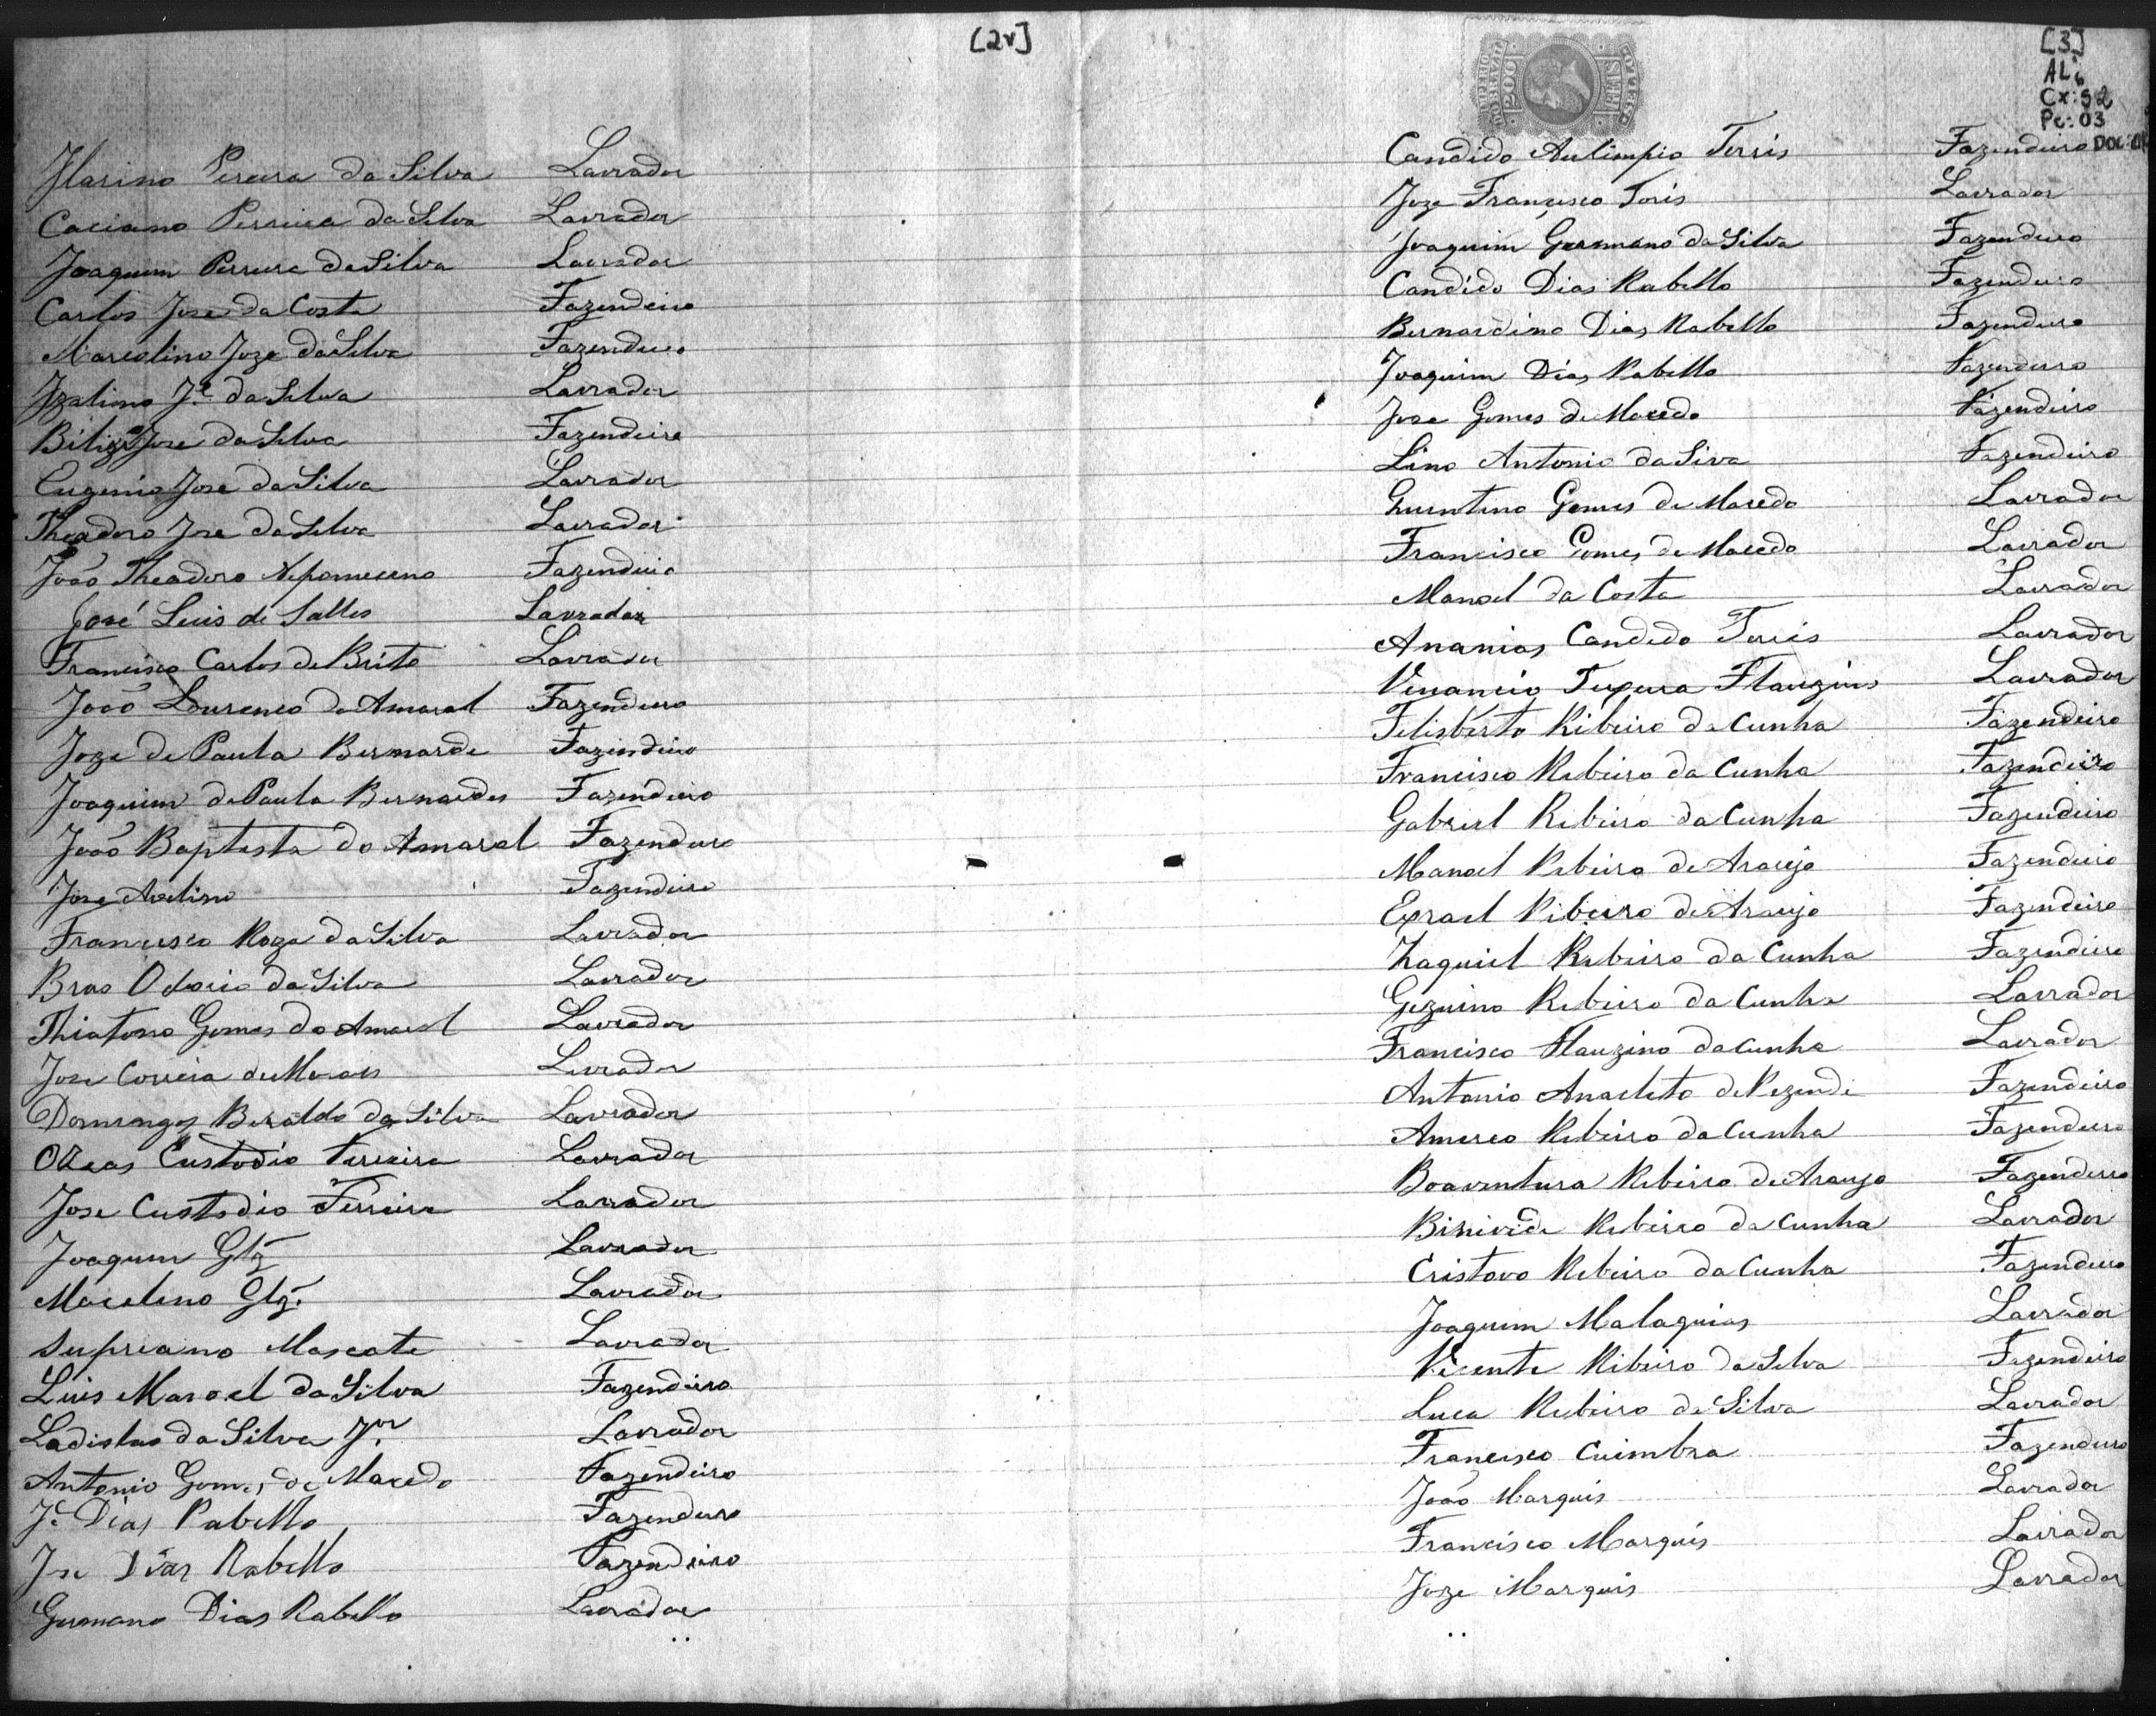 [2v]
Ilarino Pereira da Silva Lavrador
Caciano Perreira da Silva Lavrador
Joaquim Perreira da Silva Lavrador
Carlos Jose da Costa Fazendeiro
Marcolino Joze da Silva Fazendeiro
Izalino Je. da Silva Lavrador
Jose da Silva Fazendeiro
Eugenio Jose da Silva Lavrador
Theadoro Jose da Silva Lavrador
João Theadoro Nepomeceno Fazendeiro
José Luis de Salles Lavrador
Francisco Carlos de Brito Lavrador
João Lourenco do Amaral Fazendeiro
Joze de Paula Bernarde Fazendeiro
Joaquim de Paula Bernardes Fazendeiro
João Baptista do Amaral Fazendeiro
Jose Avelino Fazendeiro
Francisco Roza da Silva Lavrador
Bras Odorio da Silva Lavrador
Gomes do Amaral Lavrador
Jose Correia de Morais Lavrador
Domingos Beraldo da Silva Lavrador
Ozeas Custodio Ferreira Lavrador
Jose Custodio Ferreira Lavrador
Joaquim Glz Lavrador
Macelino Glz. Lavrador
Supreano Mascate Lavrador
Luis Manoel da Silva Fazendeiro
Ladislao da Silva Jor. Lavrador
Antonio Gomes de Macedo Fazendeiro
Je. Dias Rabello Fazendeiro
Jse Dias Rabello Fazendeiro
Germano Dias Rabello Lavrador
[3]
AL:
Cx: 52
Pc: 03
IMPERIO DO BRAZIL
200 REIS
Candido Aulimpio Terris Fazendeiro
Joze Francisco Toris Lavrador
Joaquim Germano da Silva Fazendeiro
Candido Dias Rabello Fazendeiro
Bernardino Dias Rabello Fazendeiro
Joaquim Dias Rabello Fazendeiro
Jose Gomes de Macedo Fazendeiro
Lino Antonio da Siva Fazendeiro
Quintino Gomes de Macedo Lavrador
Francisco Gomes de Macedo Lavrador
Manoel da Costa Lavrador
Ananias Candido Lavrador
Venancio Texeira Flauzino Lavrador
Felisberto Ribeiro da Cunha Fazendeiro
Francisco Rebeiro da Cunha Fazendeiro
Gabriel Ribeiro da Cunha Fazendeiro
Manoel Rebeiro de Araujo Fazendeiro
Exrael Ribeiro de Araujo Fazendeiro
Zaquiel Rebeiro da Cunha Fazendeiro
Gezuino Rebeiro da Cunha Lavrador
Francisco Flauzino da Cunha Lavrador
Antonio Anacleto de Rezende Fazendeiro
Americo Rebeiro da Cunha Fazendeiro
Boaventura Rebeiro de Araujo Fazendeiro
Rebeiro da Cunha Lavrador
Cristovo Rebeiro da Cunha Fazendeiro
Joaquim Malaquias Lavrador
Vicente Ribeiro da Silva Fazendeiro
Luca Rebeiro da Silva Lavrador
Francisco Cuimbra Fazendeiro
João Marquis Lavrador
Francisco Marquis Lavrador
Joze Marquis Lavrador